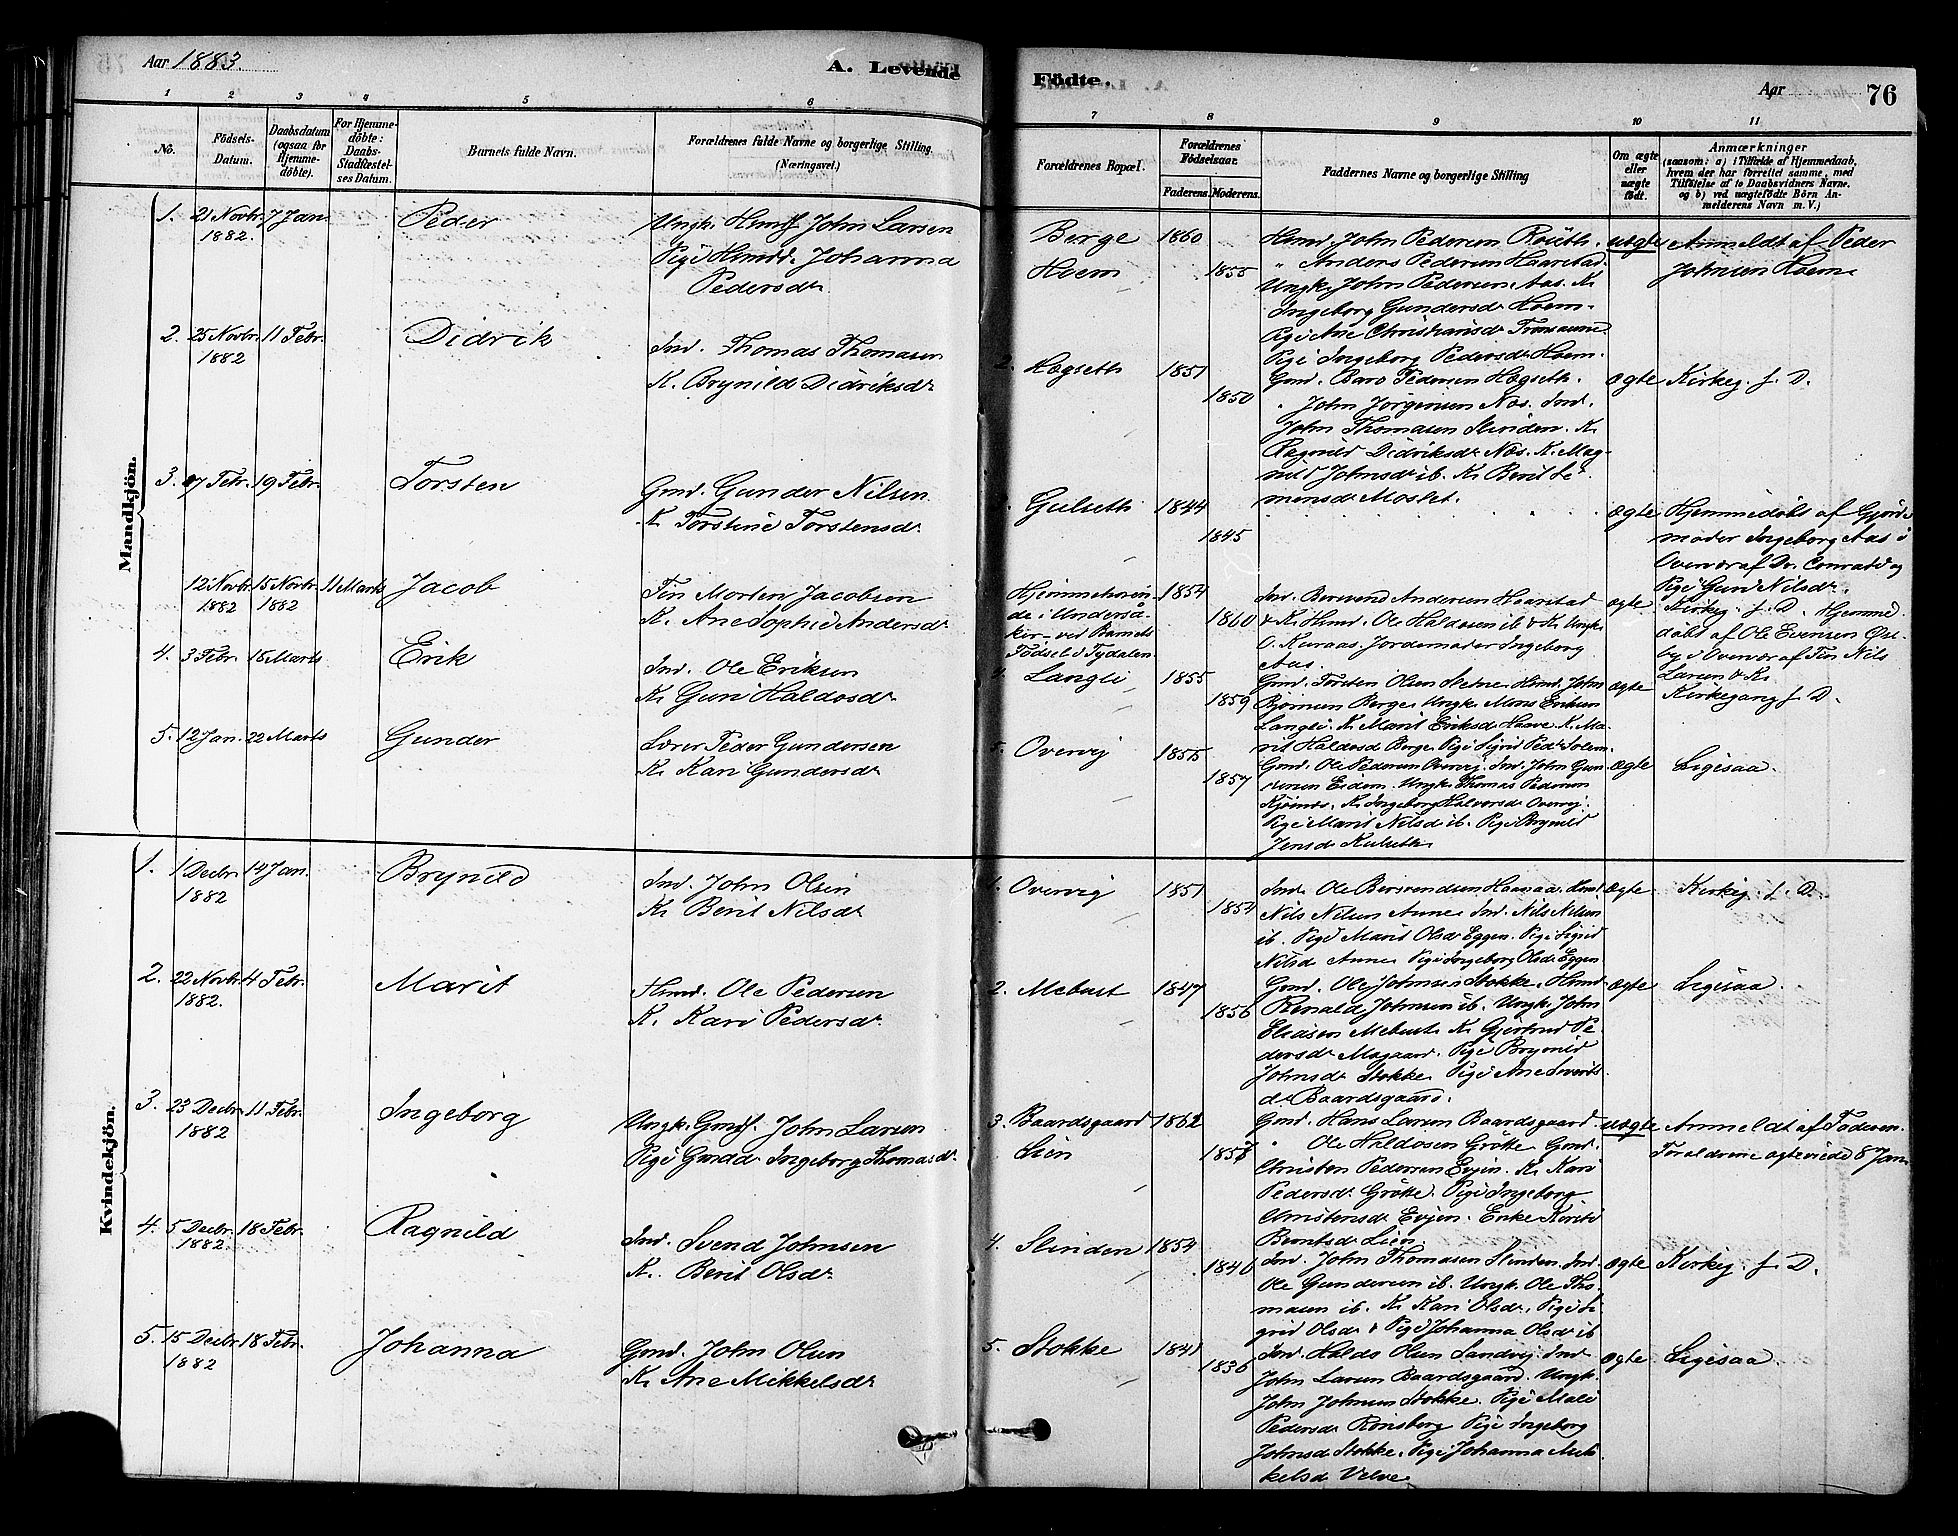 Aar 1883.
A. Levende
Födte.
Aar
76
1 2 3 4 5 6
7 8 9 10 11
No.
Födsels-
Datum.
Daabsdatum
(ogsaa for
Hjemme-
döbte).
For Hjemme-
döbte:
Daabs-
Stadfæstel-
ses Datum.
Barnets fulde Navn.
Forældrenes fulde Navne og borgerlige Stilling.
(Næringsvei.)
Forældrenes Bopæl.
Forældrenes
Födselsaar.
Faderens. Moderens.
Faddernes Navne og borgerlige Stilling
Om ægte
eller
uægte
födt.
Anmærkninger
(saasom: a) i Tilfælde af Hjemmedaab,
hvem der har forrettet samme, med
Tilföielse af to Daabsvidners Navne.
og b) ved uægtefödte Börn An-
melderens Navn m. V.)
Mandkjön.
1. 21 Novbr. 7 Jan. Peder
1882.
Ungk. Hmdf. John Larsen
Pige Hmdd. Johanna
Pedersdr.
Berge 1860
Hoem 1855
Hmd. John Pedersen Röuth.
" Anders Pedersen Haarstad.
Ungk. John Pedersen Aas. K.
Ingeborg Gundersdr Hoem.
Pige Ane Christiansdr
Pige Ingeborg Pedersdr Hoem.
uægte
Anmeldt af Peder
Johnsen Hoem
2. 25 Novbr. 11 Febr. Didrik
1882
Ind. Thomas Thomasen
K. Brynild Didriksdr
2. Hægseth 1851
1850
Gmd. Baro Pedersen Hægseth.
" John Jörgensen Næs. Ind.
John Thomasen Slinden. K.
Ragnild Didriksdr Næs. K. Mag-
nild Johnsdr ib. K. Berit Si-
monsdr Mostet.
ægte Kirkeg. f. D.
3. 7 Febr. 19 Febr. Torsten
Gmd. Gunder Nilsen
K. Torstine Torstensdr.
Gulseth 1844
1845
ægte
Hjemmedöbt af Gjorde-
moder Ingeborg Aas i
Overvær af Dr. Conradi og
Pige Guni Nilsdr.
12 Novbr. 15 Novbr. 11 Marts Jacob
1882 1882
Fin Morten Jacobsen
K. Ane Sophie Andersdr
Hjemmehören-
de i Underså-
ker - ved Barnets
Födsel i Tydalen.
1854
1860
Ind. Bersvend Andersen Haarstad
& K. Hmd. Ole Haldosen ib & K. Ungk.
O. Kuraas. Jordemoder Ingeborg
Aas.
ægte
Kirkeg. f. D. Hjemme-
döbt af Ole Evensen Öst-
by i Overvær af Fin Nils
Larsen & K.
4. 3 Febr. 15 Marts Erik
Ind. Ole Eriksen
K. Guri Haldosdr
4. Langli 1855
1859
Gmd. Torsten Olsen Hmd. John
Björnsen Berge. Ungk. Mons Eriksen
Langli. K. Marit Eriksdr Haave. K. Ma-
rit Haldosd Berge. Pige Sigrid Pedr Solem.
ægte
Kirkegang f. D.
5. 12 Jan. 22 Marts Gunder
Lærer Peder Gundersen
K. Kari Gundersdr
5. Overvig 1855
1857
Gmd. Ole Pedersen Overvig. Ind. John Gun-
dersen Eidem. Ungk. Thomas Pedersen
Kjösnes. K. Ingeborg Halvorsd Overvig.
Pige Marit Nilsd ib. Pige Brynild
Jensd Kulseth.
ægte Ligesaa.
Kvindekjön.
1. 1 Decbr. 14 Jan. Brynild
1882
Ind. John Olsen
K. Berit Nilsdr
1. Overvig 1851
1854
Ind. Ole Bersvendsen Hmd.
Nils Nilsen Aune. Ind. Nils Nilsen
ib. Pige Marit Olsdr Eggen. Pige Sigrid
Nilsd Aune. Pige Ingeborg Olsd Eggen
ægte Kirkeg. f. D.
2. 22 Novbr. 4 Febr. Marit
1882.
Hmd. Ole Pedersen
K. Kari Pedersdr.
2. Mebust 1847
1856
Gmd. Ole Johnsen Stokke. Hmd.
Renald Johnsen ib. Ungk. John
Eliasen Mebust. K. Gjertrud Pe-
dersdr Mogaard. Pige Brynild
Johnsdr Stokke. Pige Ane Siverts-
dr Baardsgaard.
ægte Ligesaa.
3. 23 Decbr. 11 Febr. Ingeborg
1882
Ungk. Gmdf. John Larsen
Pige Gmdd. Ingeborg Thomasdr.
3. Baardsgaard 1862
Lien 1857
Gmd. Hans Larsen Baardsgaard.
" Ole Haldosen Grötte. Gmd.
Christen Pedersen Evjen. K. Kari
Pedersdr Grötte. Pige Ingeborg
Christensdr Evjen. Enke Kirsti
Berntsdr Lien.
uægte
Anmeldt af Faderen.
Forældrene ægteviede 8 Jan.
4. 5 Decbr. 18 Febr. Ragnild
1882.
Ind. Svend Johnsen
K. Berit Olsdr.
4. Slinden 1854
1846
Ind. John Thomasen Slinden. Ind.
Ole Gundersen ib. Ungk. Ole Tho-
masen ib. K. Kari Olsdr. Pige Si-
grid Olsdr & Pige Johanna Olsdr ib
ægte Kirkeg. f. D.
5. 15 Decbr. 18 Febr. Johanna
1882
Gmd. John Olsen
K. Ane Mikkelsdr
5. Stokke 1841
1836
Ind. Haldo Olsen Sandvig. Ind.
John Larsen Baardsgaard. Ungk.
John Johnsen Stokke. Pige Mali
Pedersdr Rönsberg. Pige Ingeborg
Johnsd Stokke. Pige Johanna Mik-
kelsd Velve.
ægte Ligesaa.